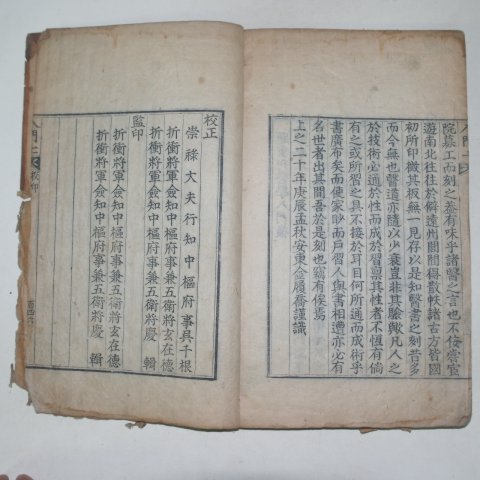 院募工而刻之盖有味乎諸醫之言也不佞嘗宦
遊南北往往於僻遠州閭間得散帙諸古方皆國
初所印微其板無一見存以是知醫書之刻昔多
而今無也醫道亦隨以少衰豈非其驗歟凡人之
於技術必通於性而成於習禀其性者不恒有倘
有之或所習之具不接於耳目何所通而成術乎
書廣布矣而使家而戶習人與書相遭亦必有
名世者出其間吾於是刻也竊有俟焉
上之二十年庚辰孟秋安東金履喬謹識
校正
崇祿大夫行知中樞府事具千根
折衝將軍僉知中樞府事兼五衛將玄在德
折衝將軍僉知中樞府事兼五衛將慶輯
監印
折衝將軍僉知中樞府事兼五衛將玄在德
折衝將軍僉知中樞府事兼五衛將慶輯